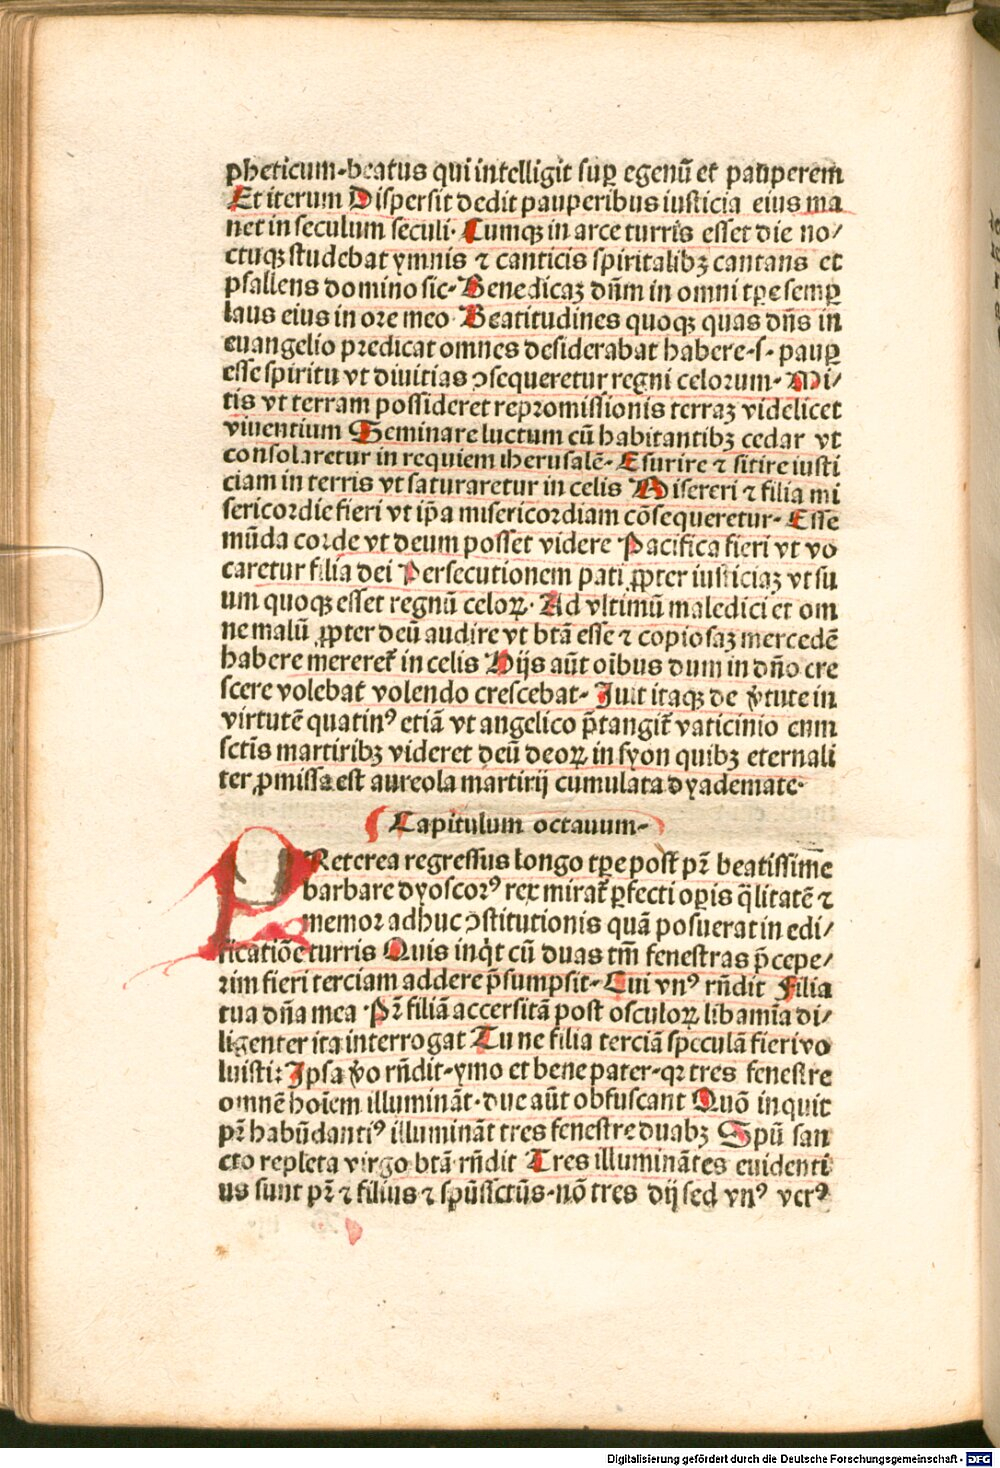 pheticum-beatus qui intelligit suꝑ egenū et pauperem
Et iterum Dispersit dedit pauperibus iusticia eius ma
net in seculum seculi· Cumqꝫ in arce turris esset die no/
ctuqꝫ studebat ymnis ⁊ canticis spiritalibꝫ cantans et
psallens domino sic- Benedicaꝫ dn̄m in omni tꝑe semꝑ
laus eius in ore meo Beatitudines quoqꝫ quas dn̄s in
euangelio predicat omnes desiderabat habere-s- pauꝑ
esse spiritu vt diuitias ↄsequeretur regni celorum- Mi/
tis vt terram possideret repromissionis terraꝫ videlicet
viuentium Seminare luctum cū habitantibꝫ cedar vt
consolaretur in requiem iherusalē- Esurire ⁊ sitire iusti
ciam in terris vt saturaretur in celis Misereri ⁊ filia mi
sericordie fieri vt ip̄a misericordiam cōsequeretur- Esse
mūda corde vt deum posset videre Pacifica fieri vt vo
caretur filia dei Persecutionem pati ꝓpter iusticiaꝫ vt su
um quoqꝫ esset regnū celoꝝ· Ad vltimū maledici et om
ne malū ꝓpter deū audire vt btā esse ⁊ copiosaꝫ mercedē
habere mereret̄ in celis Hijs aūt oībus dum in dn̄o cre
scere volebat volendo crescebat- Iuit itaqꝫ de v̄tute in
virtutē quatinꝰ etiā vt angelico p̄tangit̄ vaticinio cum
sctīs martiribꝫ videret deū deoꝝ in syon quibꝫ eternali
ter ꝓmissa est aureola martirij cumulata dyademate·
Capitulum octauum-
PReterea regressus longo tꝑe post pr̄ beatissime
barbare dyoscorꝰ rex mirat̄ ꝑfecti oꝑis q̄litatē ⁊
memor adhuc ↄstitutionis quā posuerat in edi/
ficatiōe turris Quis inq̇t cū duas tm̄ fenestras p̄cepe/
rim fieri terciam addere p̄sumpsit- Cui vnꝰ rn̄dit Filia
tua dn̄a mea Pr̄ filiā accersitā post osculoꝝ libamīa di/
ligenter ita interrogat Tu ne filia terciā speculā fieri vo
luisti: Ipsa v̄o rn̄dit-ymo et bene pater-qꝛ tres fenestre
omnē hoīem illumināt·due aūt obfuscant Quō inquit
pr̄ habūdantiꝰ illumināt tres fenestre duabꝫ Spū san
cto repleta virgo btā rn̄dit Tres illuminātes euidenti
us sunt pr̄ ⁊ filius ⁊ spūssctūs-nō tres dij sed vnꝰ verꝰ
Digitalisierung gefördert durch die Deutsche Forschungsgemeinschaft - DFG